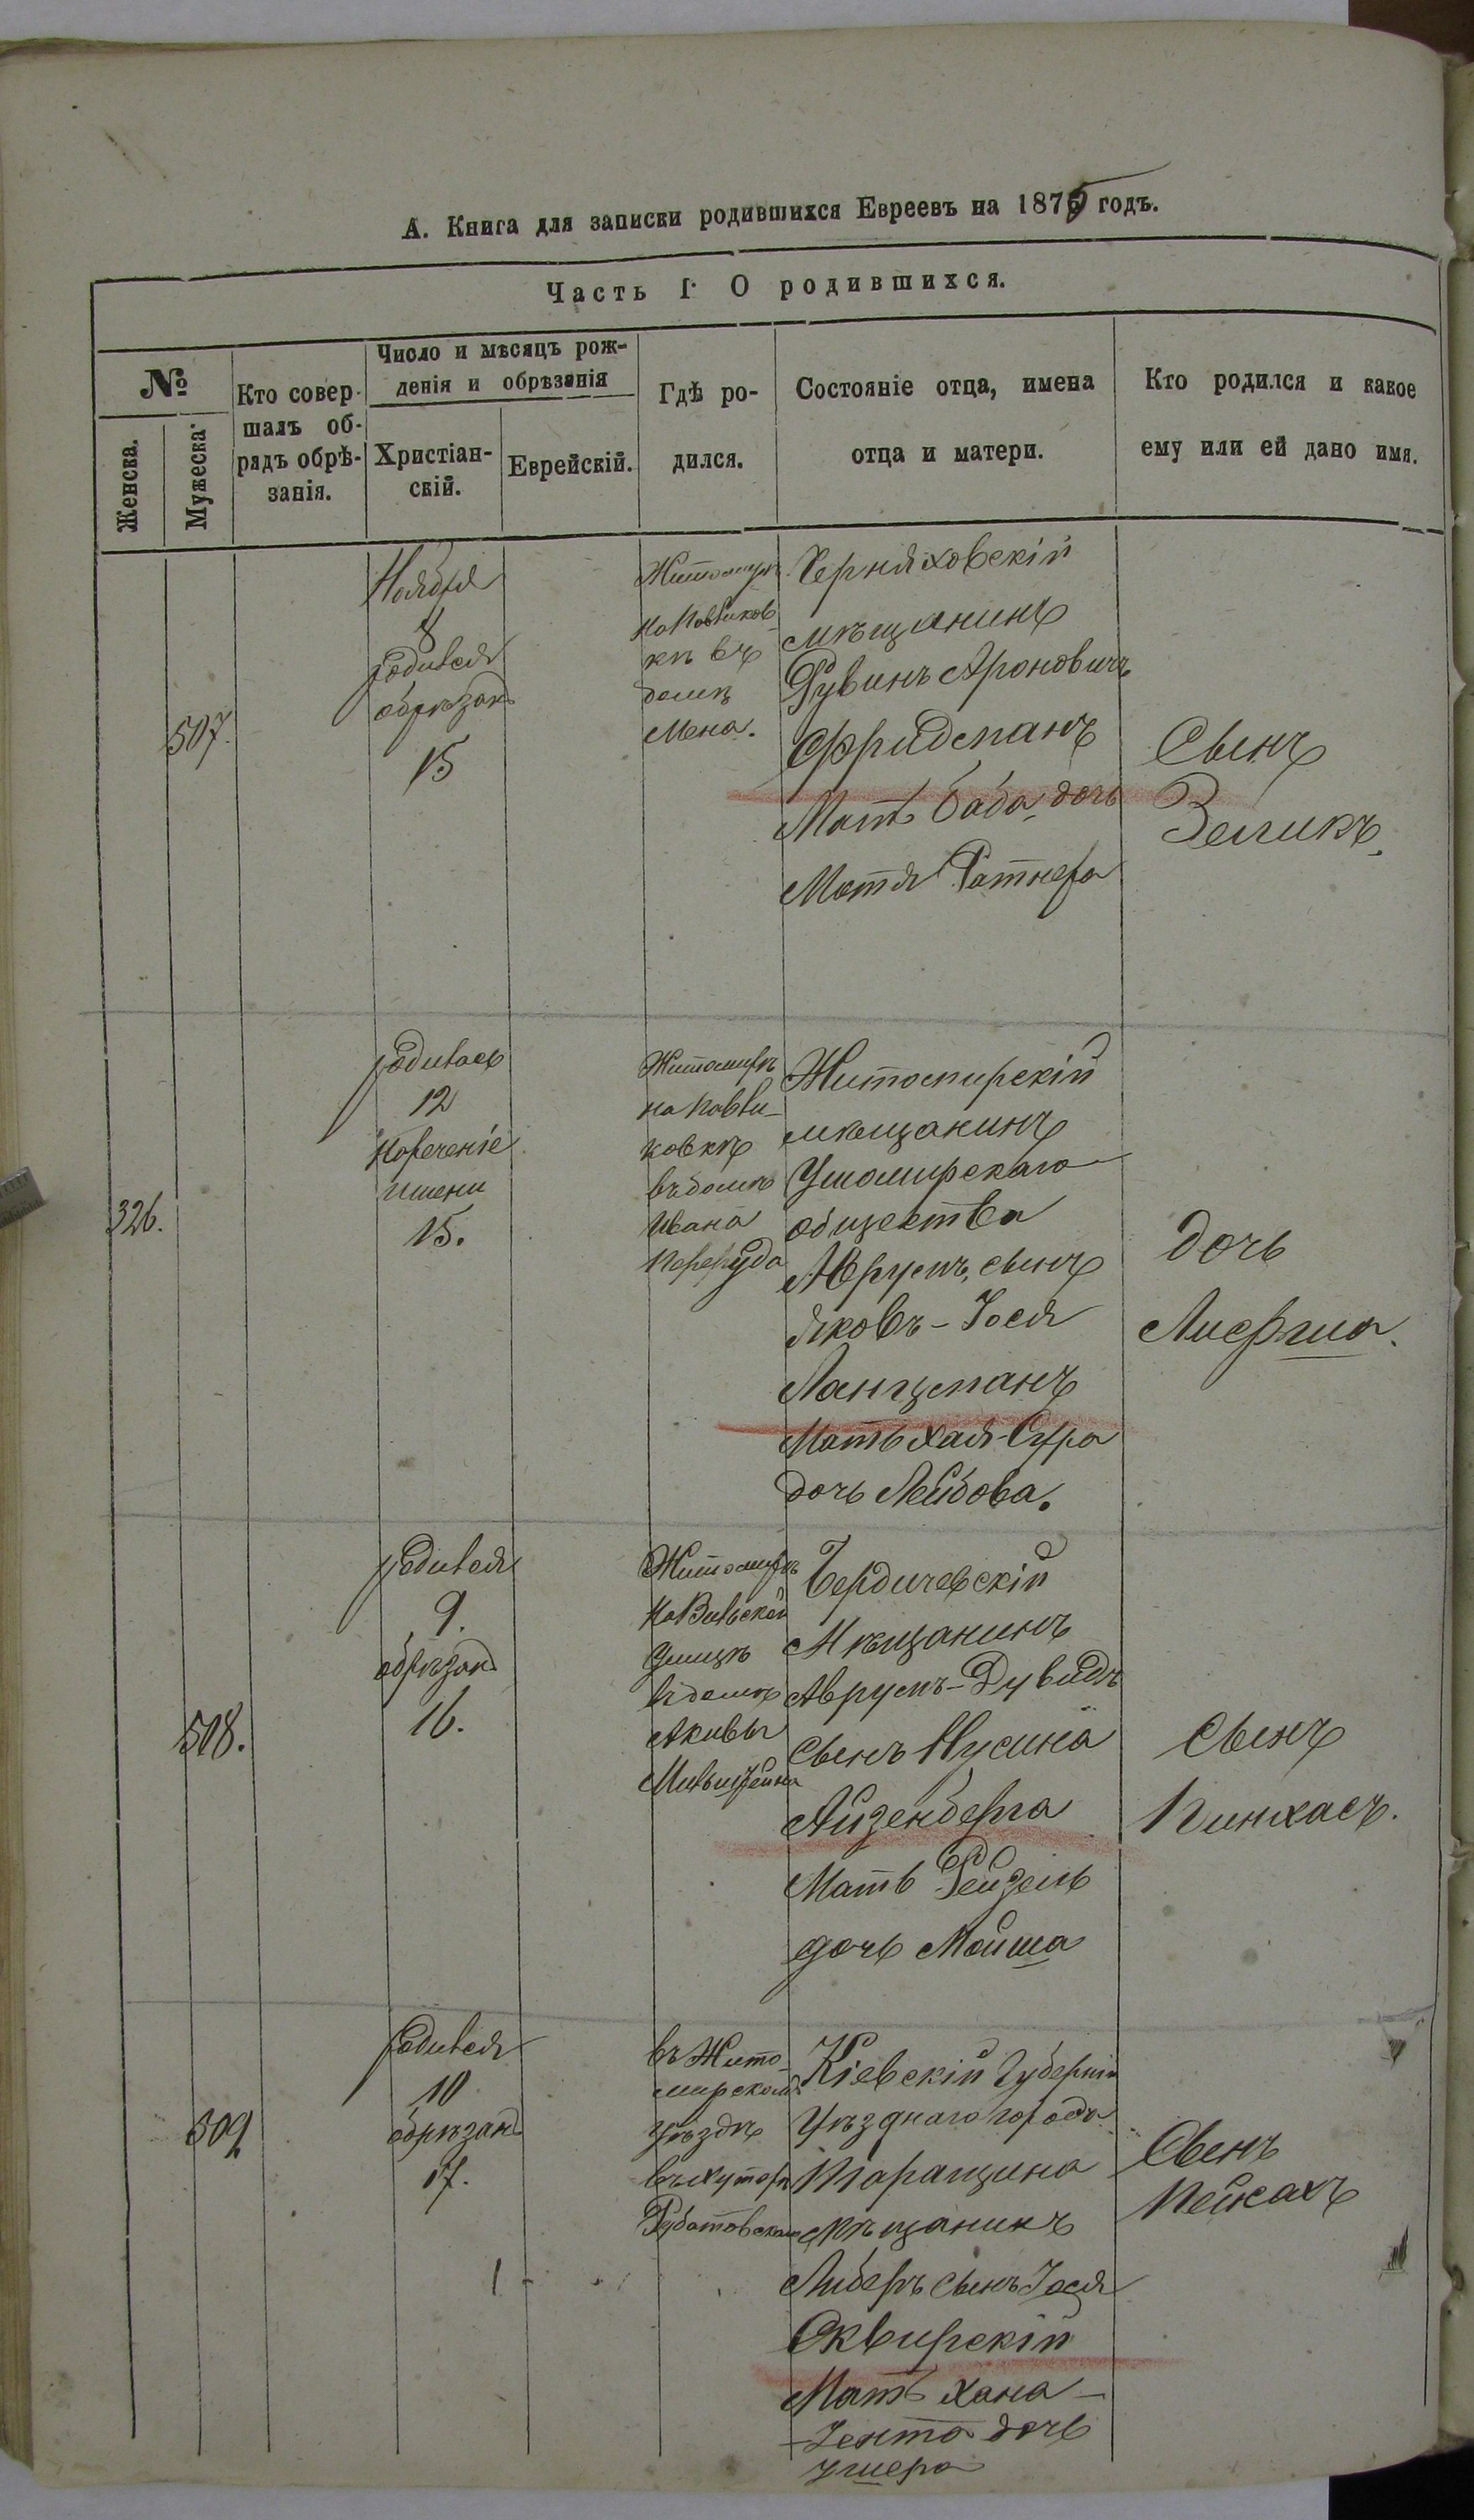 А. Книга для записки родившихся Евреевъ на 1875 годъ.
Часть I. О родившихся.
№
Женска.
Мужеска.
Кто совер-
шалъ об-
рядъ обрѣ-
занія.
Число и мѣсяцъ рож-
денія и обрѣзанія
Христіан-
скій.
Еврейскій.
Гдѣ ро-
дился.
Состояніе отца, имена
отца и матери.
Кто родился и какое
ему или ей дано имя.
507.
Ноября
8
родился
обрѣзанъ
15
Житомиръ
на Павликов-
кѣ въ
домѣ
Мена.
Черняховскій
мѣщанинъ
Рувинъ Ароновичъ
Фридманъ
Мать баба, дочь
Мотя Ратнера
Сынъ
Зеликъ.
326.
родилась
12
нареченіе
имени
15.
Житомиръ
на Павли-
ковкѣ
въ домѣ
Ивана
Житомирскій
мѣщанинъ
Ушомирскаго
общества
Аврумъ, сынъ
Яковъ-Іося
Ланцманъ
Мать Хая-Сура
дочь Лейбова.
дочь
508.
родился
9.
обрѣзанъ
16.
Житомиръ
на Вильской
улицѣ
въ домѣ
Акивы
Мильштейна
Бердичевскій
Мѣщанинъ
Аврумъ-Дувидъ
Сынъ Нусина
Айзенберга
Мать Рейзель
дочь Мойша
Сынъ
Пинхасъ.
509
родился
10
обрѣзанъ
17.
въ Жито-
мирскомъ
уѣздѣ
въ хуторѣ
Кіевскій Губерніи
Уѣзднаго города
Таращина
мѣщанинъ
Либеръ сынъ Іося
Сквирскій
Мать Хана-
-Іента дочь
Ушера
Сынъ
Пейсахъ